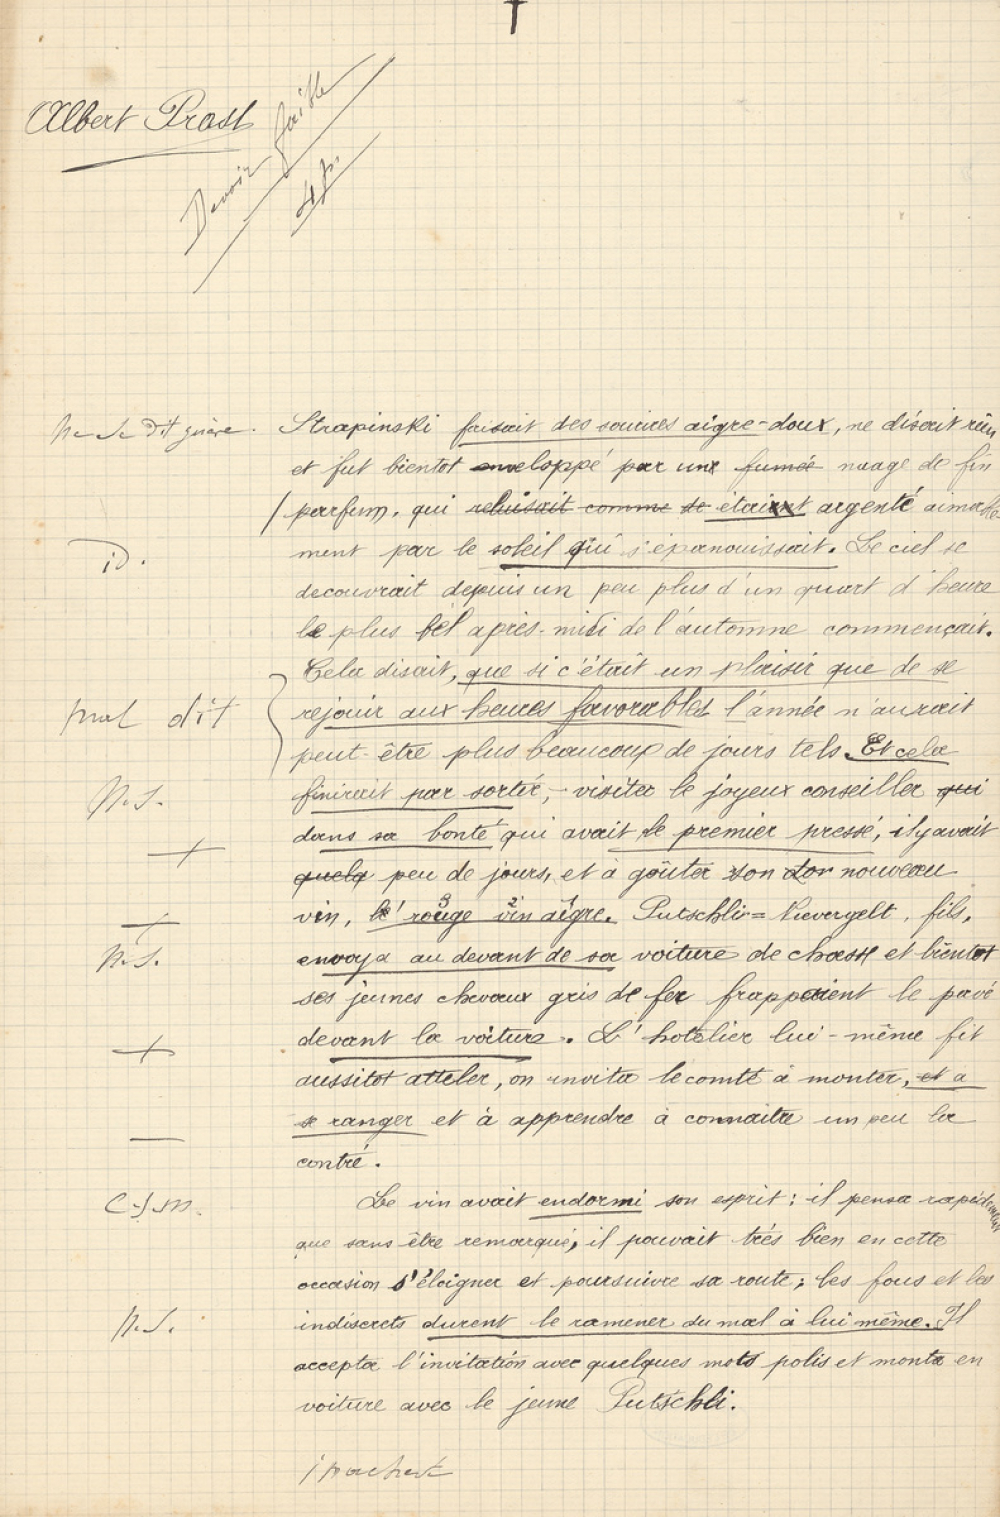 Albert Prost
Devoir faible
Ne se dit guère.
Strapinski faisait des sourires aigre-doux, ne disait rien
et fut bientot enveloppé par une fumée nuage de fin
parfum, qui reluisait comme se étaient argenté aimable
ment par le soleil qui s'épanouissait. Le ciel se
ID.
decouvrait depuis un peu plus d'un quart d'heure
le plus bel après-midi de l'automne commençait.
Cela disait, que si c'était un plaisir que de se
rejouir aux heures favorables l'année n'aurait
mal dit
peut-être plus beaucoup de jours tels. Et cela
finirait par sortir, visiter le joyeux conseiller qui
N.S.
dans sa bonté qui avait le premier pressé, il y avait
+
quelq peu de jours, et à goûter son nouveau
vin, le rouge vin aigre. Putschli = Nievergelt, fils,
+
envoya au devant de sa voiture de chasse et bientot
N.S.
ses jeunes chevaux gris de fer frappaient le pavé
devant la voiture. L'hotelier lui-même fit
+
aussitot atteler, on invita le comte à monter, et a
se ranger et à apprendre à connaitre un peu la
contré.
Le vin avait endormi son esprit: il pensa rapidement
C.S.M.
que sans être remarqué, il pouvait très bien en cette
occasion s'éloigner et poursuivre sa route; les fous et les
indiscrets durent le ramener du mal à lui même. Il
N.S.
accepta l'invitation avec quelques mots polis et monta en
voiture avec le jeune Putschli.